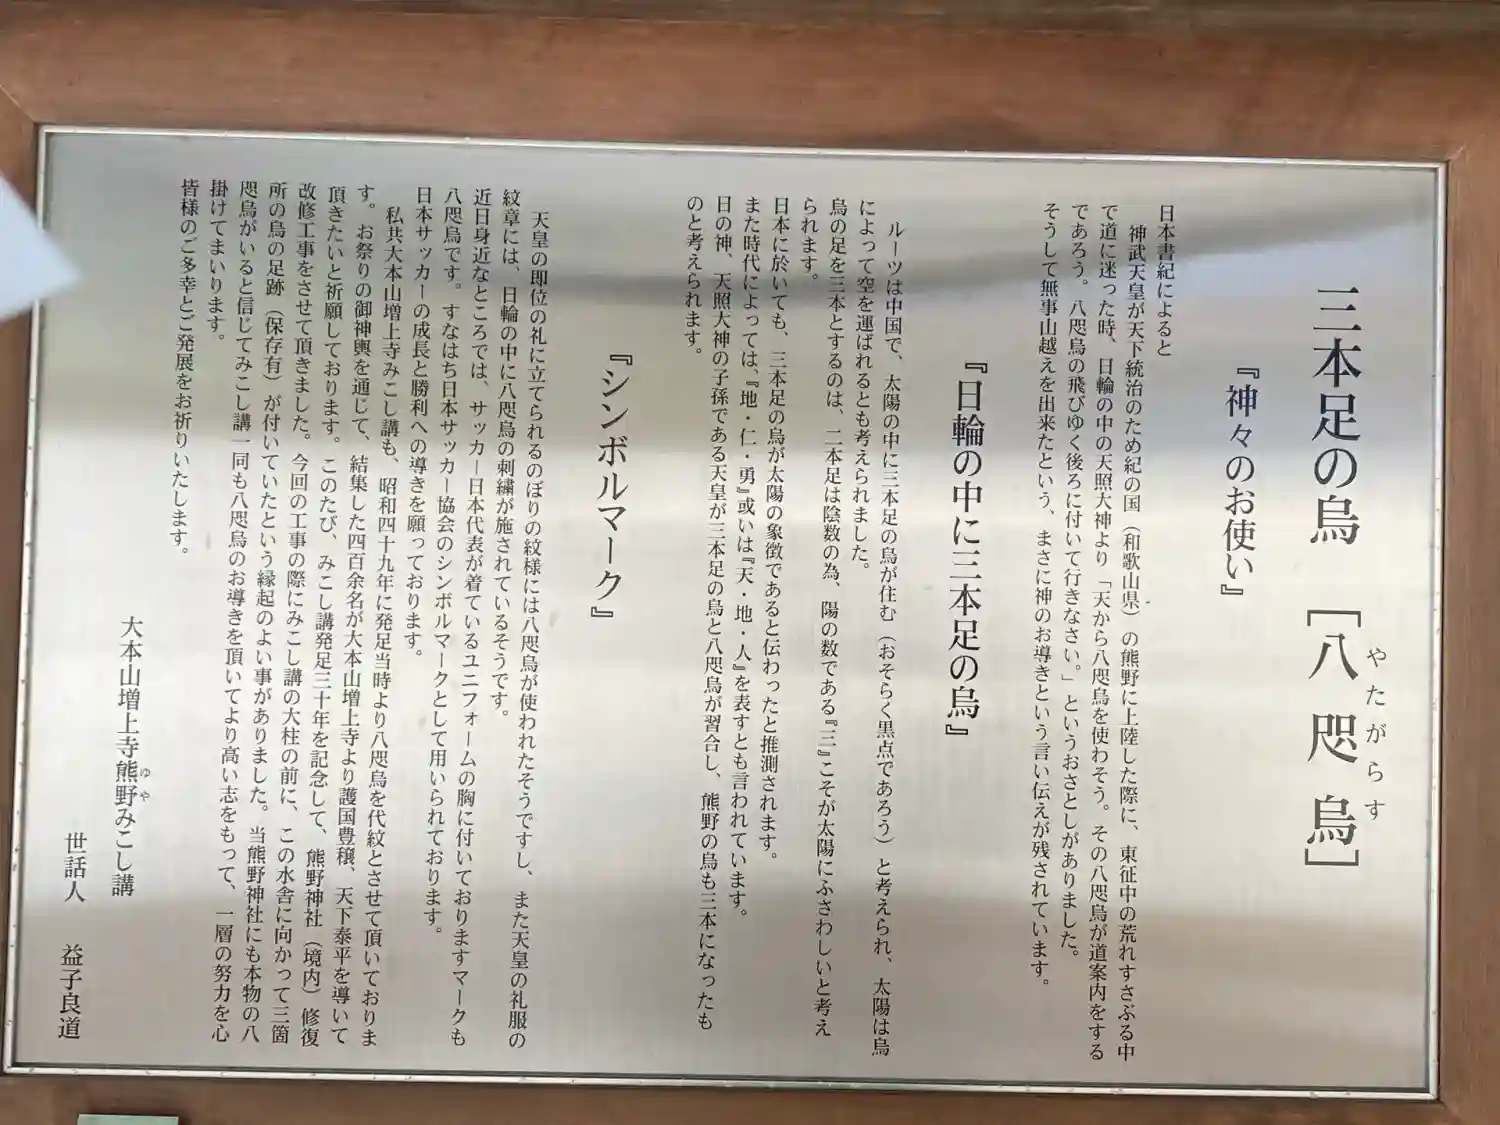 三本足の烏 [八咫烏]
やたがらす
『神々のお使い』
日本書紀によると
神武天皇が天下統治のため紀の国（和歌山県）の熊野に上陸した際に、東征中の荒れすさぶる中
で道に迷った時、日輪の中の天照大神より「天から八咫烏を使わそう。その八咫烏が道案内をする
であろう。八咫烏の飛びゆく後ろに付いて行きなさい。」というおさとしがありました。
そうして無事山越えを出来たという、まさに神のお導きという言い伝えが残されています。
『日輪の中に三本足の烏』
ルーツは中国で、太陽の中に三本足の烏が住む（おそらく黒点であろう）と考えられ、太陽は烏
によって空を運ばれるとも考えられました。
烏の足を三本とするのは、二本足は陰数の為、陽の数である『三』こそが太陽にふさわしいと考え
られます。
日本に於いても、三本足の烏が太陽の象徴であると伝わったと推測されます。
また時代によっては、『地・仁・勇』或いは『天・地・人』を表すとも言われています。
日の神、天照大神の子孫である天皇が三本足の烏と八咫烏が習合し、熊野の烏も三本になったも
のと考えられます。
『シンボルマーク』
天皇の即位の礼に立てられるのぼりの紋様には八咫烏が使われたそうですし、また天皇の礼服の
紋章には、日輪の中に八咫烏の刺繍が施されているそうです。
近日身近なところでは、サッカー日本代表が着ているユニフォームの胸に付いておりますマークも
八咫烏です。すなはち日本サッカー協会のシンボルマークとして用いられております。
日本サッカーの成長と勝利への導きを願っております。
私共大本山増上寺みこし講も、昭和四十九年に発足当時より八咫烏を代紋とさせて頂いておりま
す。お祭りの御神輿を通じて、結集した四百余名が大本山増上寺より護国豊穣、天下泰平を導いて
頂きたいと祈願しております。このたび、みこし講発足三十年を記念して、熊野神社（境内）修復
改修工事をさせて頂きました。今回の工事の際にみこし講の大柱の前に、この水舎に向かって三箇
所の烏の足跡（保存有）が付いていたという縁起のよい事がありました。当熊野神社にも本物の八
咫烏がいると信じてみこし講一同も八咫烏のお導きを頂いてより高い志をもって、一層の努力を心
掛けてまいります。
皆様のご多幸とご発展をお祈りいたします。
大本山増上寺熊野みこし講
ゆや
世話人 益子良道